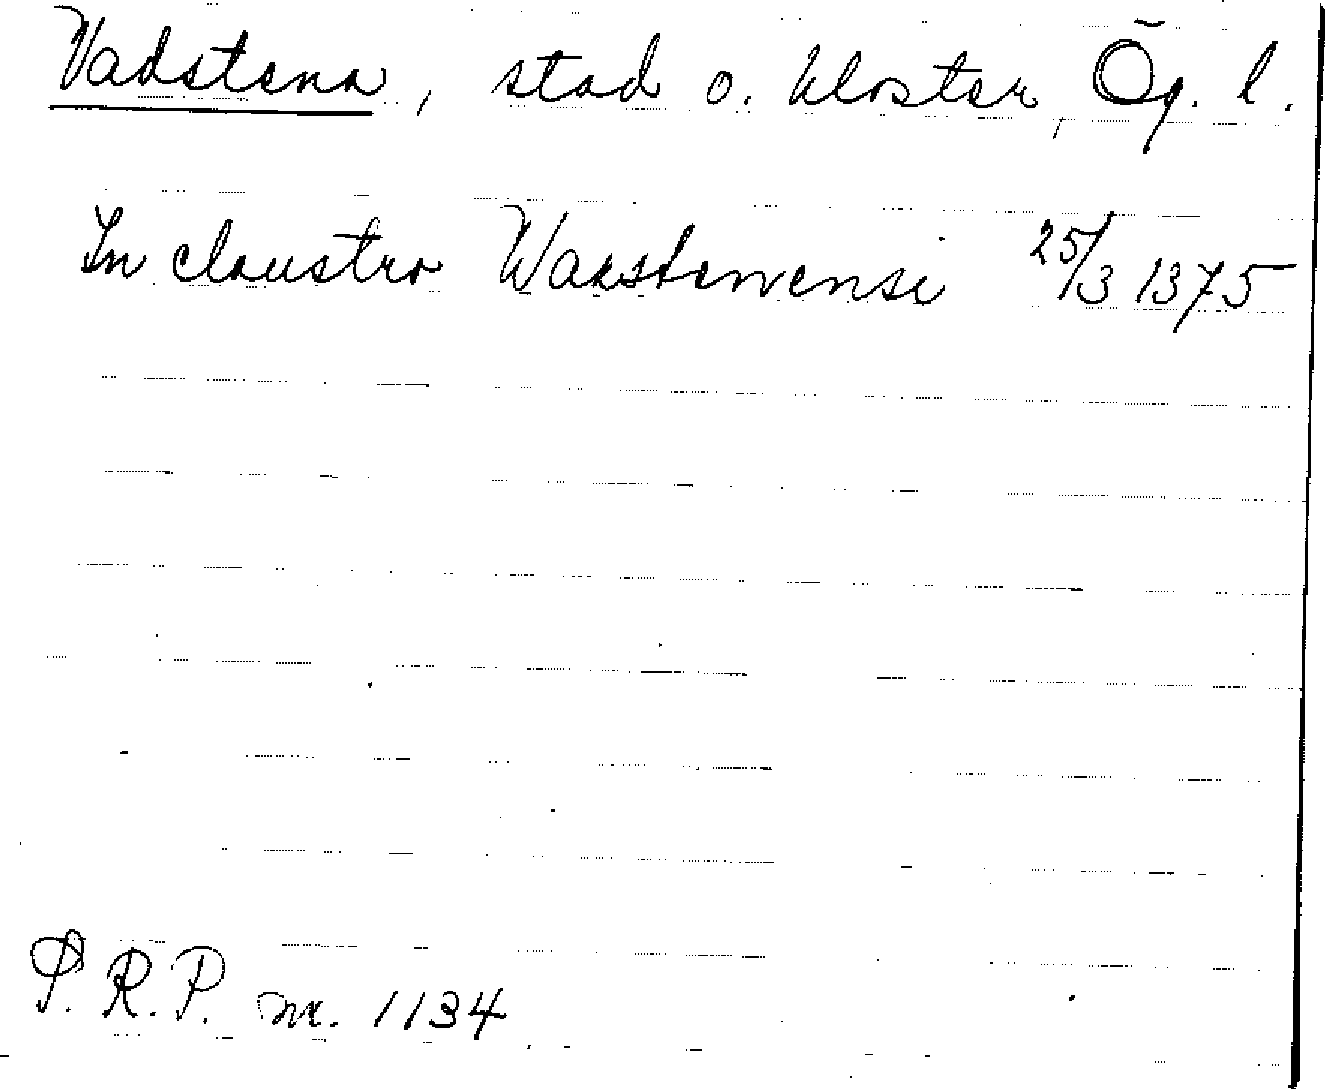 Vadstena, stad o. kloster, Ög. l.
In claustro Wazstenensi 25/3 1375
S. R. P. nr. 1134